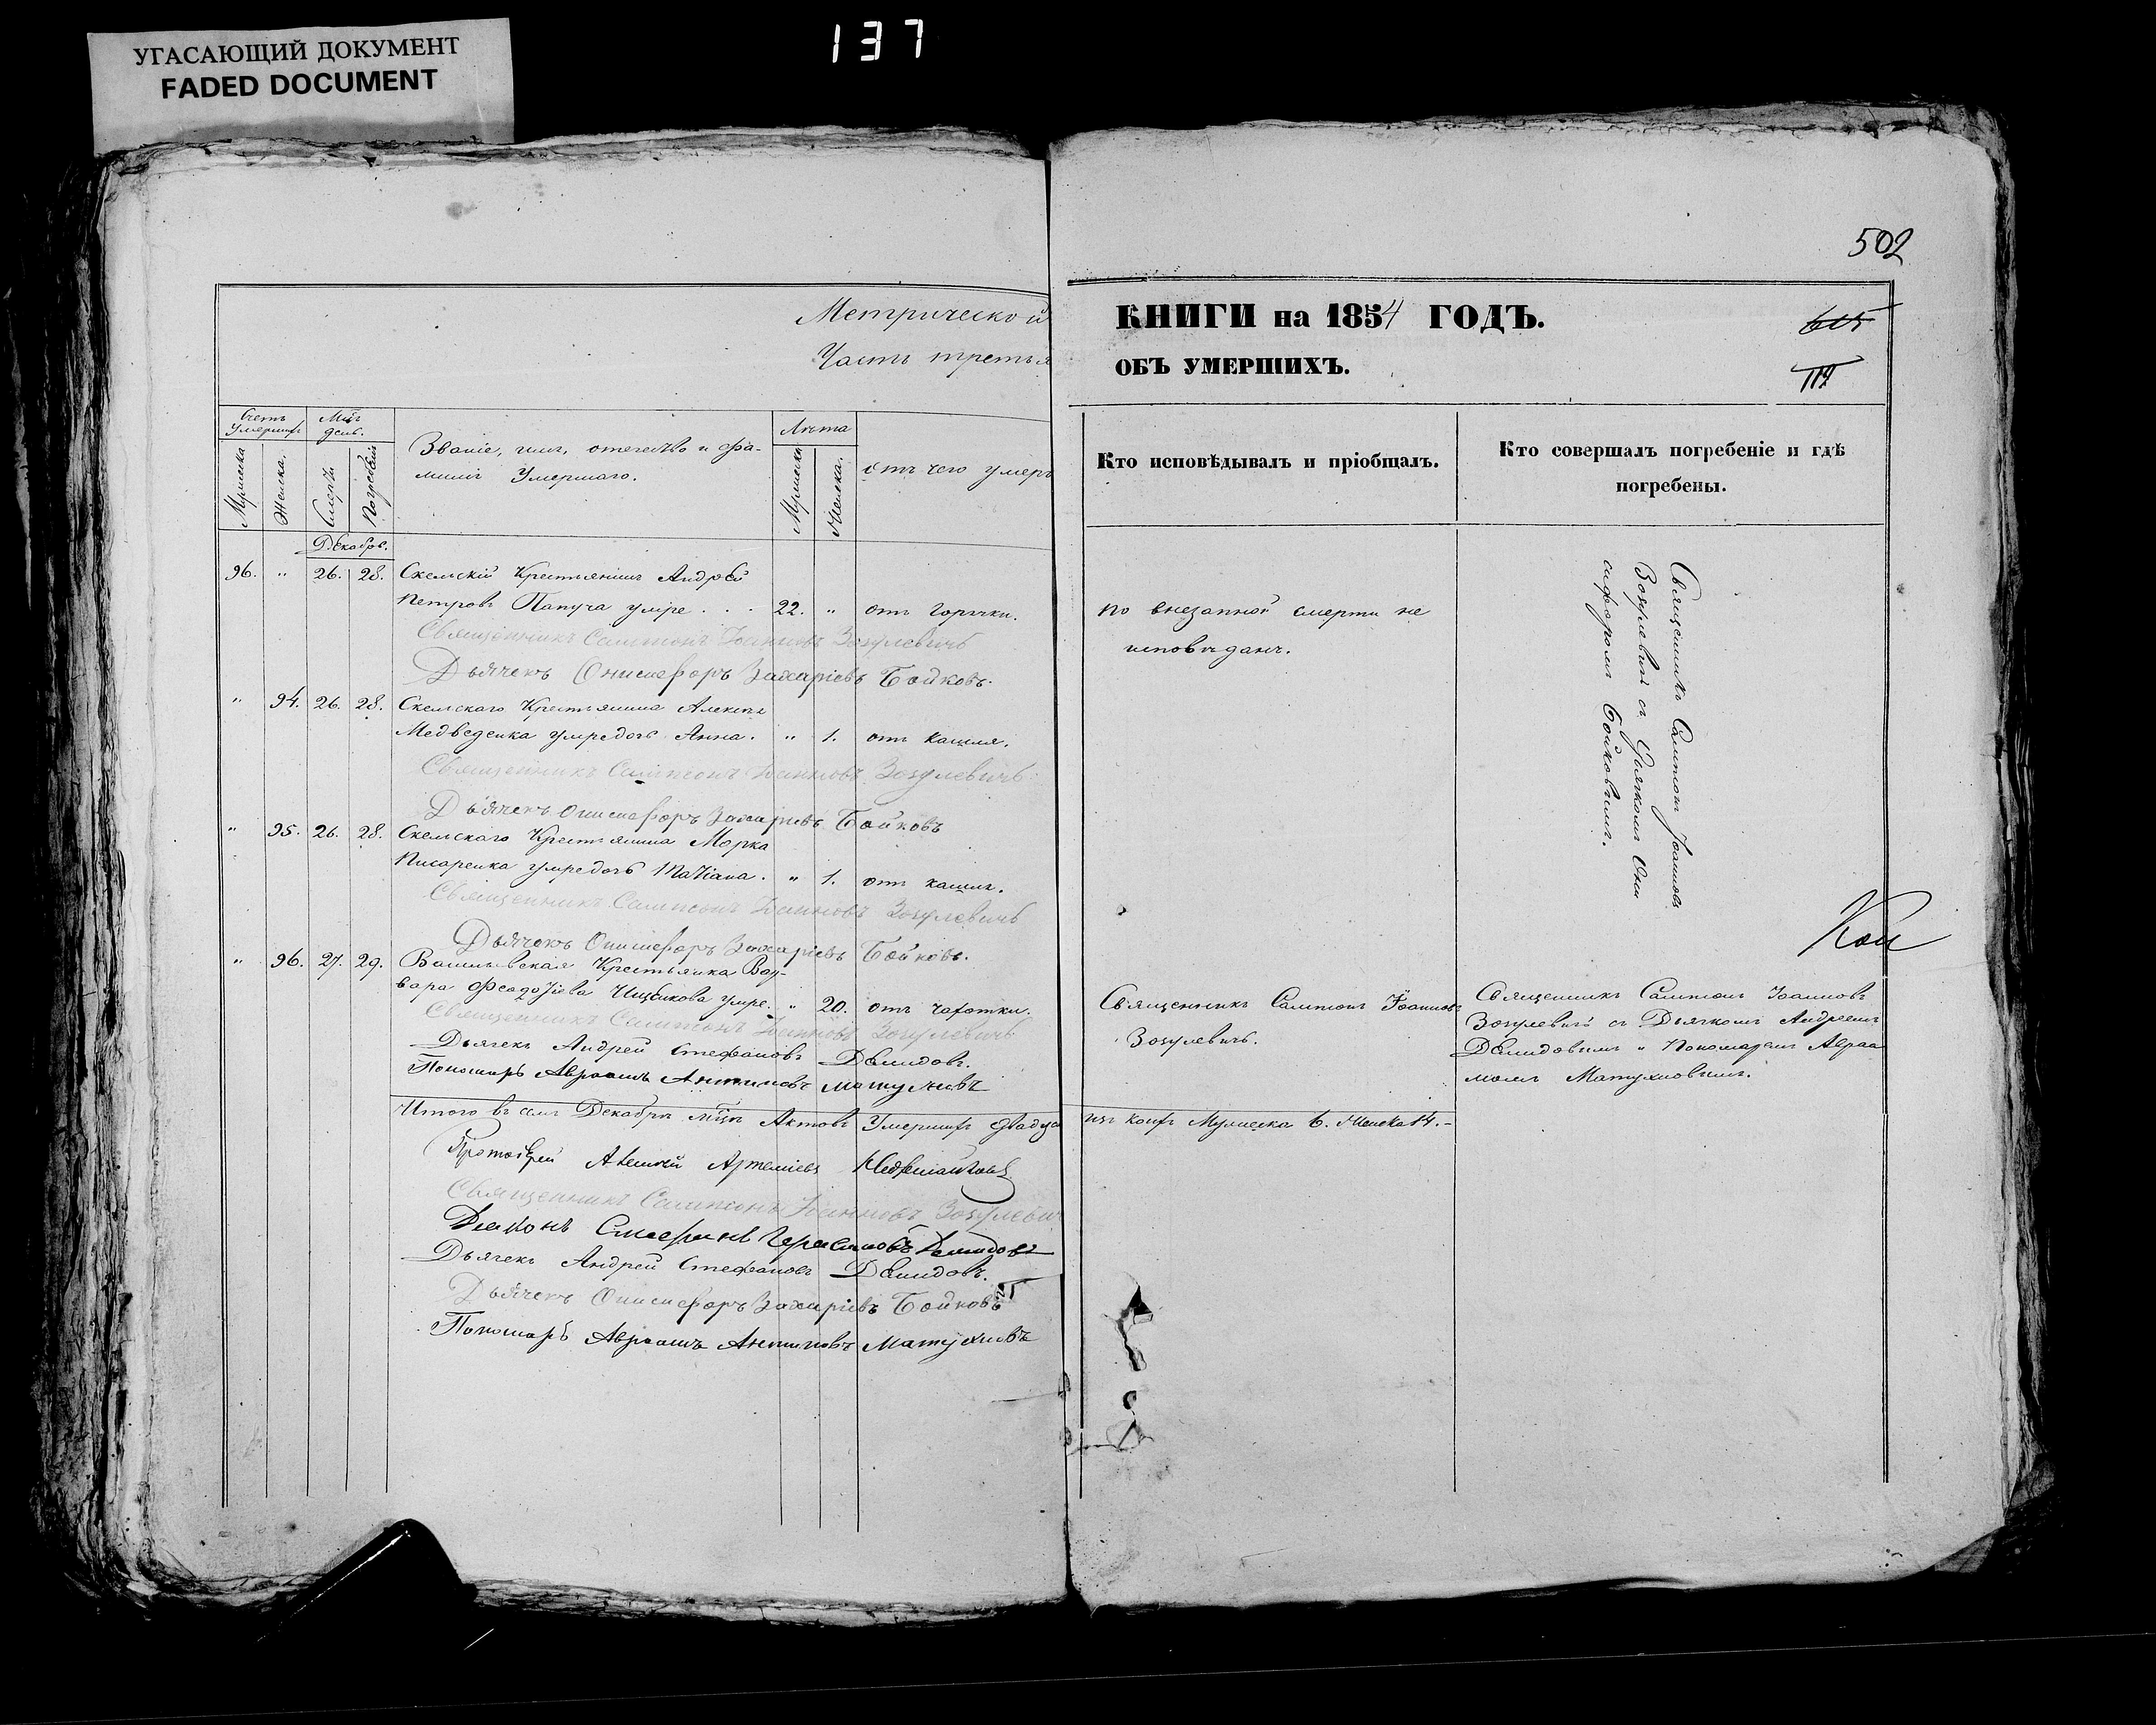 УГАСАЮЩИЙ ДОКУМЕНТ
FADED DOCUMENT
137
502
Метрической
КНИГИ на 1854 ГОДЪ.
615
Часть третья
ОБЪ УМЕРШИХЪ.
Счетъ умершихъ
Мужеска
Женска.
день.
Смерти
Погребенія
Званіе, имя, отечество и фа-
милія Умершаго.
Лѣта
Мужеска
Женска.
отъ чего умеръ
Кто исповѣдывалъ и пріобщалъ.
Кто совершалъ погребеніе и гдѣ
погребены.
Декабрь.
96. " 26. 28. Скельскій Крестьянинъ Андрей
Петровъ Папуча умре . . . 22. " отъ горячки.
по внезапной смерти не
исповѣданъ.
Священникъ Сампсонъ Іоанновъ Зозулевичь
Дьячекъ Онисифоръ Захаріевъ Бойковъ.
" 94. 26. 28. Скельскаго Крестьянина Алексѣя
Медведенка умре дочь Анна. " 1. отъ кашля.
Священникъ Сампсонъ Іоанновъ Зозулевичь
Дьячекъ Онисифоръ Захаріевъ Бойковъ
" 95. 26. 28. Скельскаго Крестьянина Марка
Писаренка умре дочь Татіана. " 1. отъ кашля.
Священникъ Сампсонъ Іоанновъ Зозулевичь
Дьячекъ Онисифоръ Захаріевъ Бойковъ.
Священникъ Сампсонъ Іоанновъ
Зозулевичь съ Дьячкомъ Они
сифоромъ Бойковымъ.
" 96. 27. 29. Васильевская Крестьянка Вар-
вара Феодосіева умре. " 20. отъ чахотки.
Священникъ Сампсонъ Іоанновъ
Зозулевичь.
Священникъ Сампсонъ Іоанновъ
Зозулевичь съ Дьячкомъ Андреемъ
Демидовымъ и Пономаремъ Авраа
момъ Матухновымъ.
Священникъ Сампсонъ Іоанновъ Зозулевичь
Дьячекъ Андрей Стефановъ Демидовъ.
Пономарь Авраамъ Антиповъ Матухновъ
Итого въ семъ Декабрѣ мцѣ Актовъ Умершихъ двадца
Мужеска 6. Женска 14.-
Протоіерей Алексѣй Артеміевъ
Священникъ Сампсонъ Іоанновъ Зозулевичь
Діаконъ Стефанъ Герасимовъ Демидовъ
Дьячекъ Андрей Стефановъ Демидовъ.
Дьячекъ Онисифоръ Захаріевъ Бойковъ
Пономарь Авраамъ Антиповъ Матухновъ